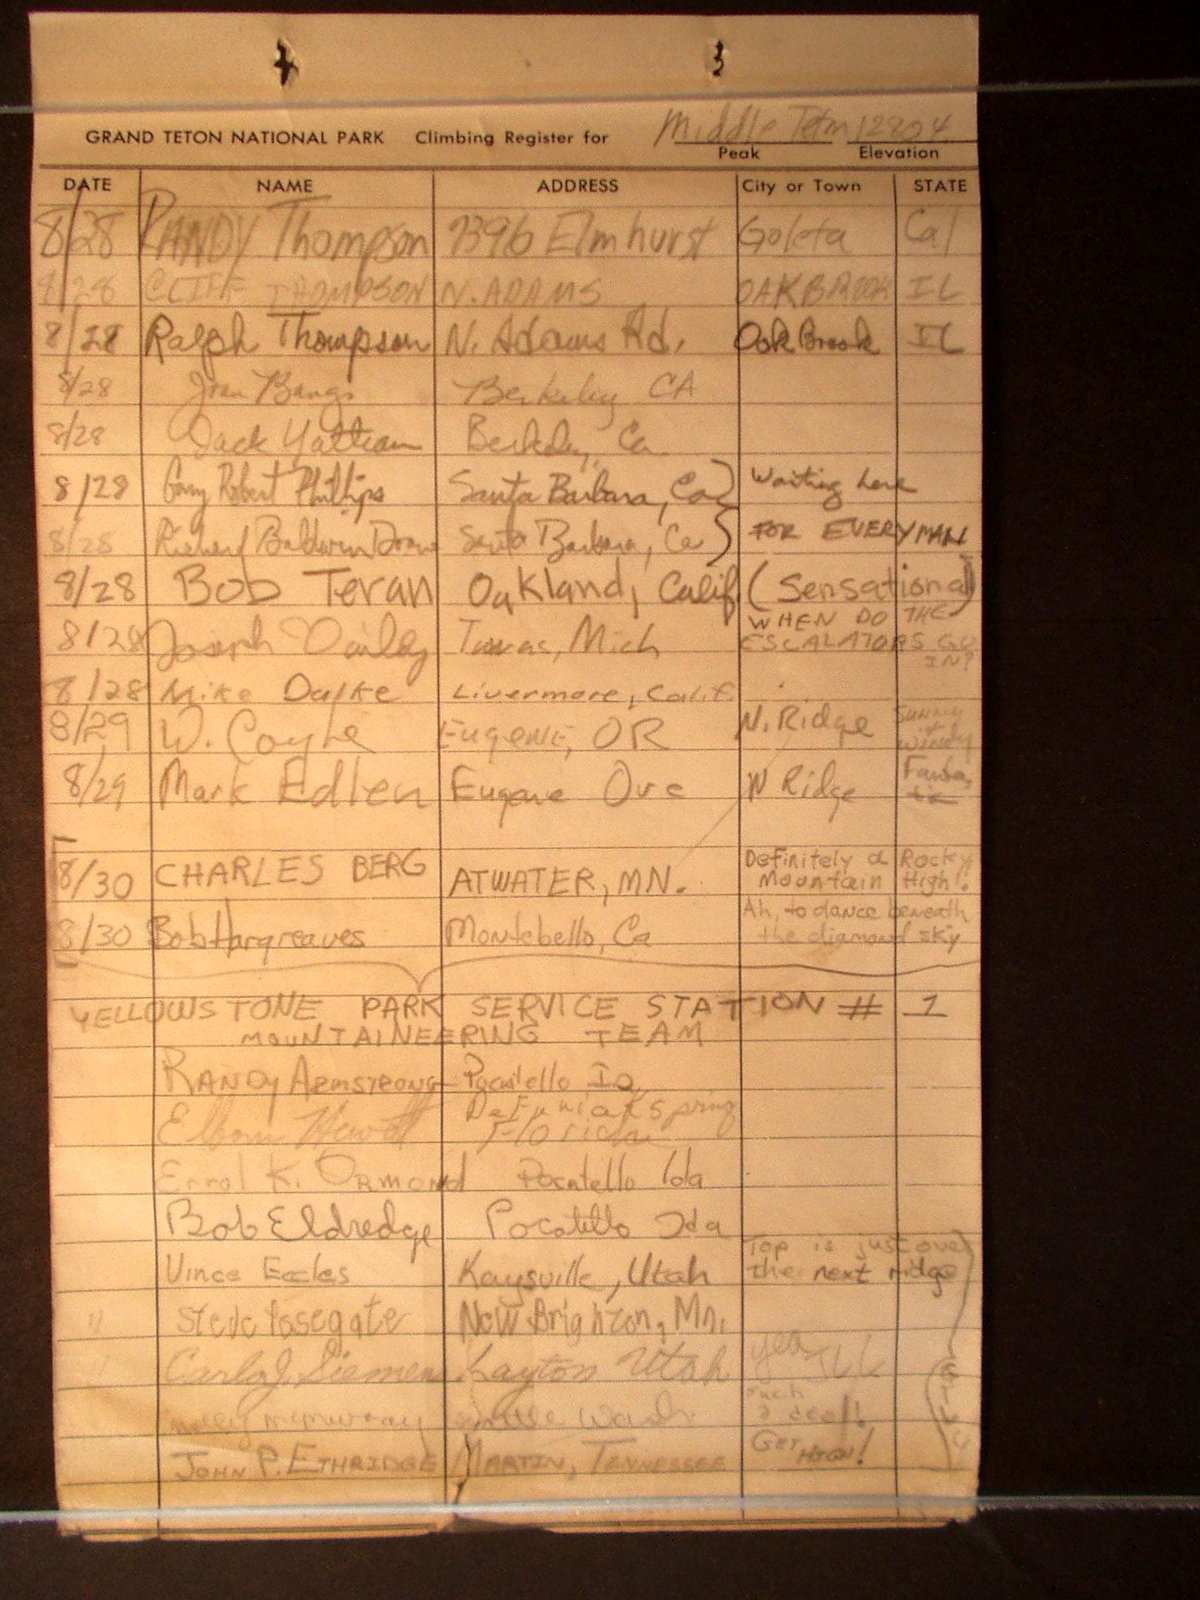 GRAND TETON NATIONAL PARK Climbing Register for Middle Teton 12804
Peak Elevation
DATE NAME ADDRESS City or Town STATE
8/28 RANDY Thompson 7396 Elmhurst Goleta Cal
8/28 CLIFF THOMPSON N. ADAMS OAKBROOK IL
8/28 Ralph Thompson N. Adams Rd. Oak Brook IL
8/28 Bangs Berkeley CA
8/28 Jack Berkeley, Ca
8/28 Gary Robert Phillips Santa Barbara, Ca Waiting here
8/28 Richard Baldwin Santa Barbara, Ca FOR EVERYMAN
8/28 Bob Teran Oakland, Calif (Sensational)
8/28 Joseph Mich WHEN DO THE
ESCALATORS GO
IN?
8/28 Mike Livermore, Calif.
8/29 W. Coyne Eugene, OR N. Ridge Sunny
windy
8/29 Mark Edlen Eugene Ore N Ridge Fantas
tic
8/30 CHARLES BERG ATWATER, MN. Definitely a Rocky
Mountain High!!
8/30 Bob Hargreaves Montebello, Ca Ah, to dance beneath
the diamond sky
YELLOWSTONE PARK SERVICE STATION # 1
MOUNTAINEERING TEAM
RANDY ARMSTRONG Pocatello Id
Hewett Defuniak Spring
Florida
Errol K. ORMOND Pocatello Ida
Bob Eldredge Pocatello Ida
Vince Eccles Kaysville, Utah Top is just over
the next ridge
" Steve New Brighton, Mn.
Carla J Siemen Layton Utah yea
McMurray Wash such
a deal!
JOHN P. ETHRIDGE MARTIN, TENNESSEE GET HIGH!